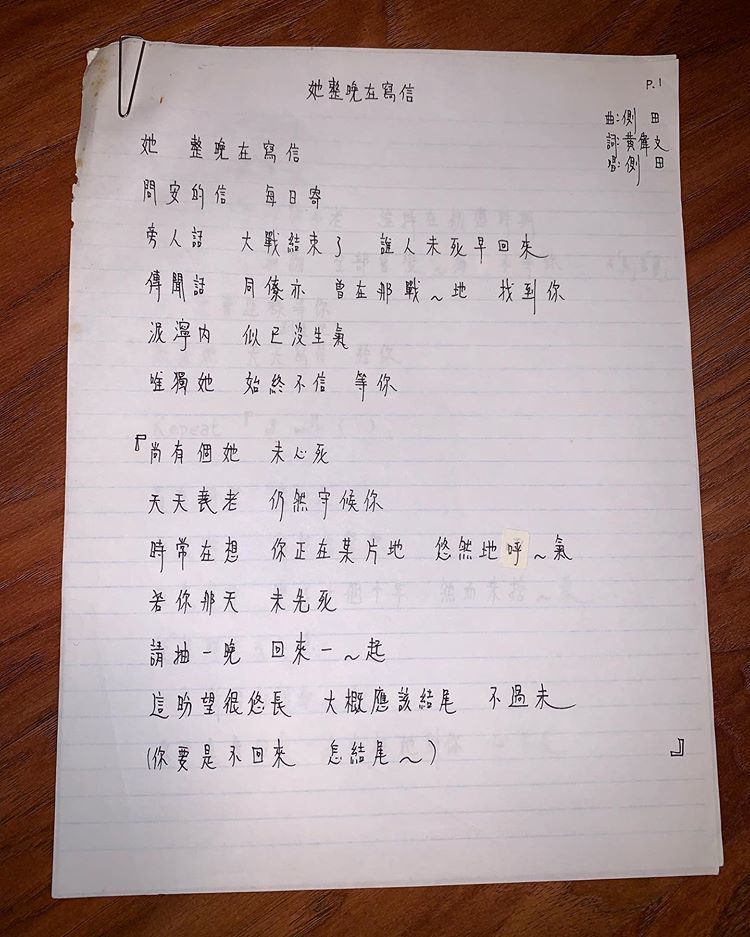 P.1
她整晚在寫信
曲:側 田
詞:黃偉文
唱:側 田
她 整晚在寫信
問安的信 每日寄
旁人話 大戰結束了 誰人未死早回來
傳聞話 同僚亦 曾在那戰~地 找到你
泥濘內 似已沒生氣
唯獨她 始終不信 等你
『尚有個她 未心死
天天衰老 仍然守候你
時常在想 你正在某片地 悠然地呼~氣
若你那天 未先死
請抽一晚 回來一~起
這盼望很悠長 大概應該結尾 不過未
(你要是不回來 怎結尾~) 』
Repeat